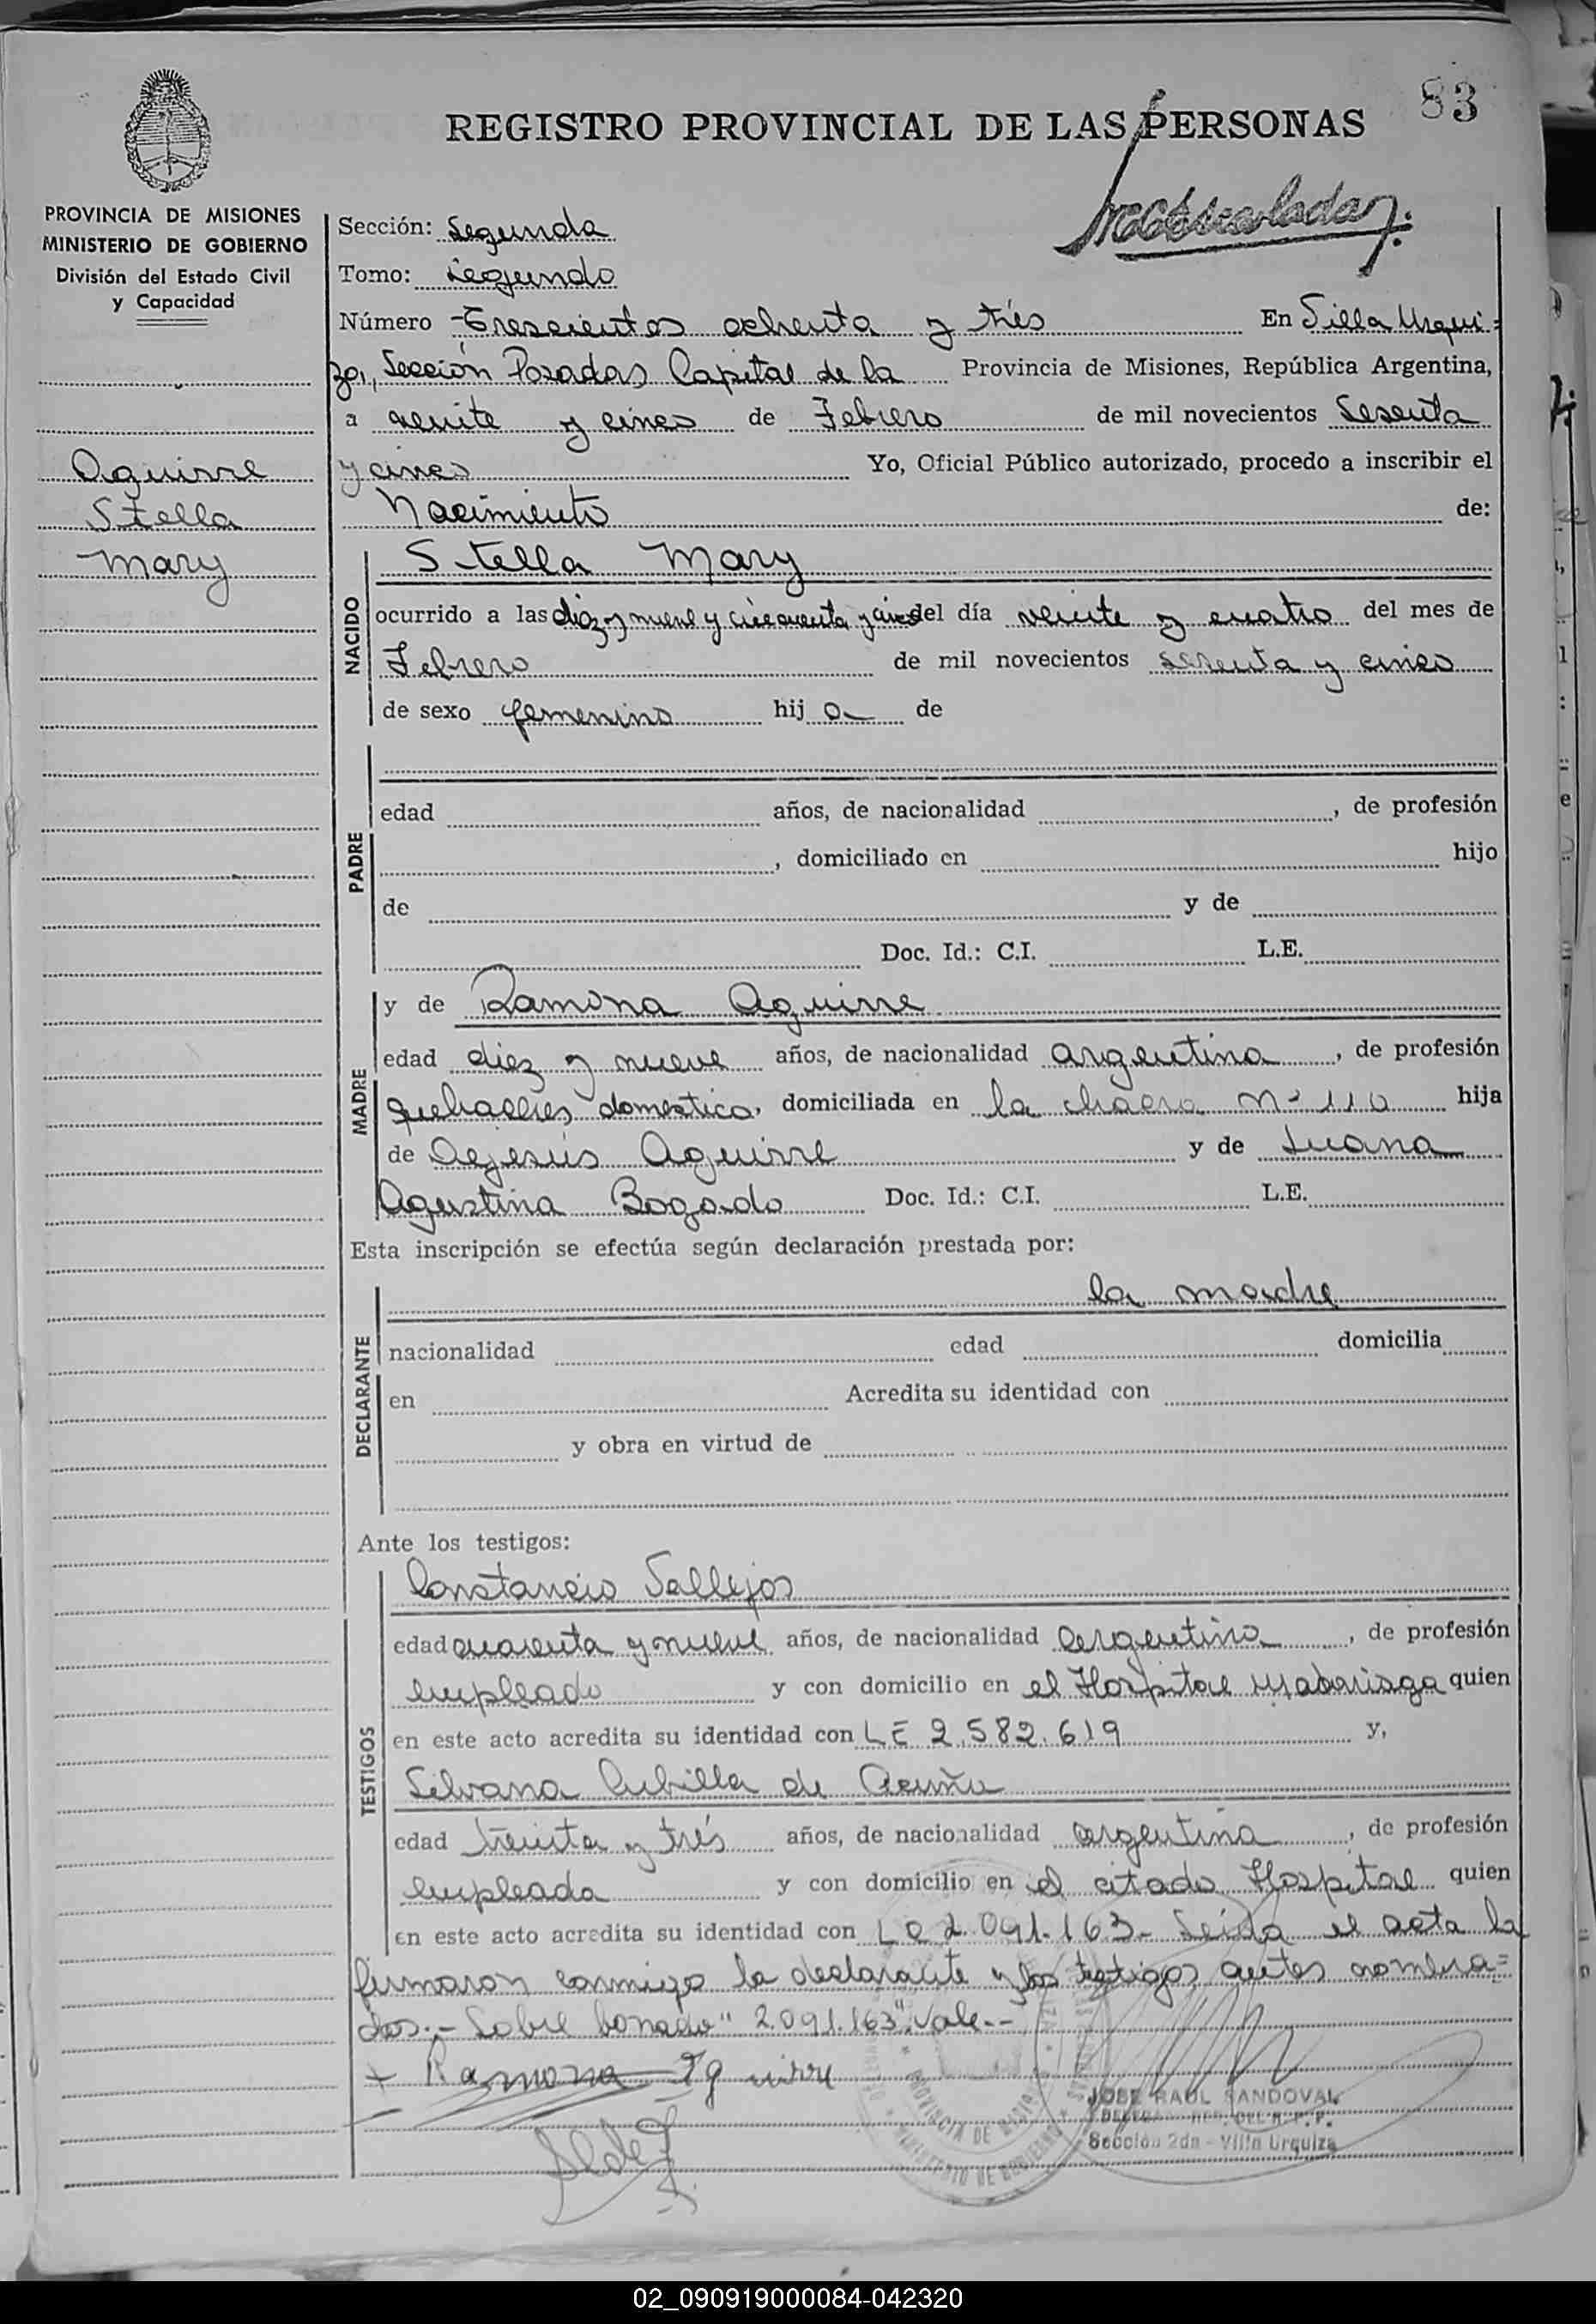 83
REGISTRO PROVINCIAL DE LAS PERSONAS
PROVINCIA DE MISIONES
MINISTERIO DE GOBIERNO
División del Estado Civil
y Capacidad
Aguirre
Stella
Mary
Sección: Segunda
Tomo: Segundo
Número Trescientos ochenta y trés En Villa Urqui=
za, Sección Posadas Capital de la Provincia de Misiones, República Argentina,
a veinte y cinco de Febrero de mil novecientos Sesenta
y cinco Yo, Oficial Público autorizado, procedo a inscribir el
Nacimiento de:
NACIDO
Stella Mary
ocurrido a las diez y nueve y cincuenta y cinco del día veinte y cuatro del mes de
Febrero de mil novecientos sesenta y cinco
de sexo femenino hija de
PADRE
edad años, de nacionalidad , de profesión
, domiciliado en hijo
de y de
Doc. Id.: C.I. L.E.
MADRE
y de Ramona Aguirre
edad diez y nueve años, de nacionalidad argentina, de profesión
quehaceres domestico, domiciliada en la chacra Nº 110 hija
de Dejesús Aguirre y de Juana
Agustina Bogado Doc. Id.: C.I. L.E.
Esta inscripción se efectúa según declaración prestada por:
DECLARANTE
la madre
nacionalidad edad domicilia
en Acredita su identidad con
y obra en virtud de
Ante los testigos:
TESTIGOS
Constancio Vallejos
edad cuarenta y nueve años, de nacionalidad argentino, de profesión
empleado y con domicilio en el Hospital Madariaga quien
en este acto acredita su identidad con LE 2.582.619 y,
Silvana Cubilla de Acuña
edad treinta y trés años, de nacionalidad argentina, de profesión
empleada y con domicilio en el citado Hospital quien
en este acto acredita su identidad con LC 2.091.163- Leída el acta la
firmaron conmigo la declarante y los testigos antes nombra=
dos.- Sobre borrado "2.091.163" Vale.-
+ Ramona Aguirre
JOSE RAUL SANDOVAL
Sección 2da - Villa Urquiza
02_090919000084-042320